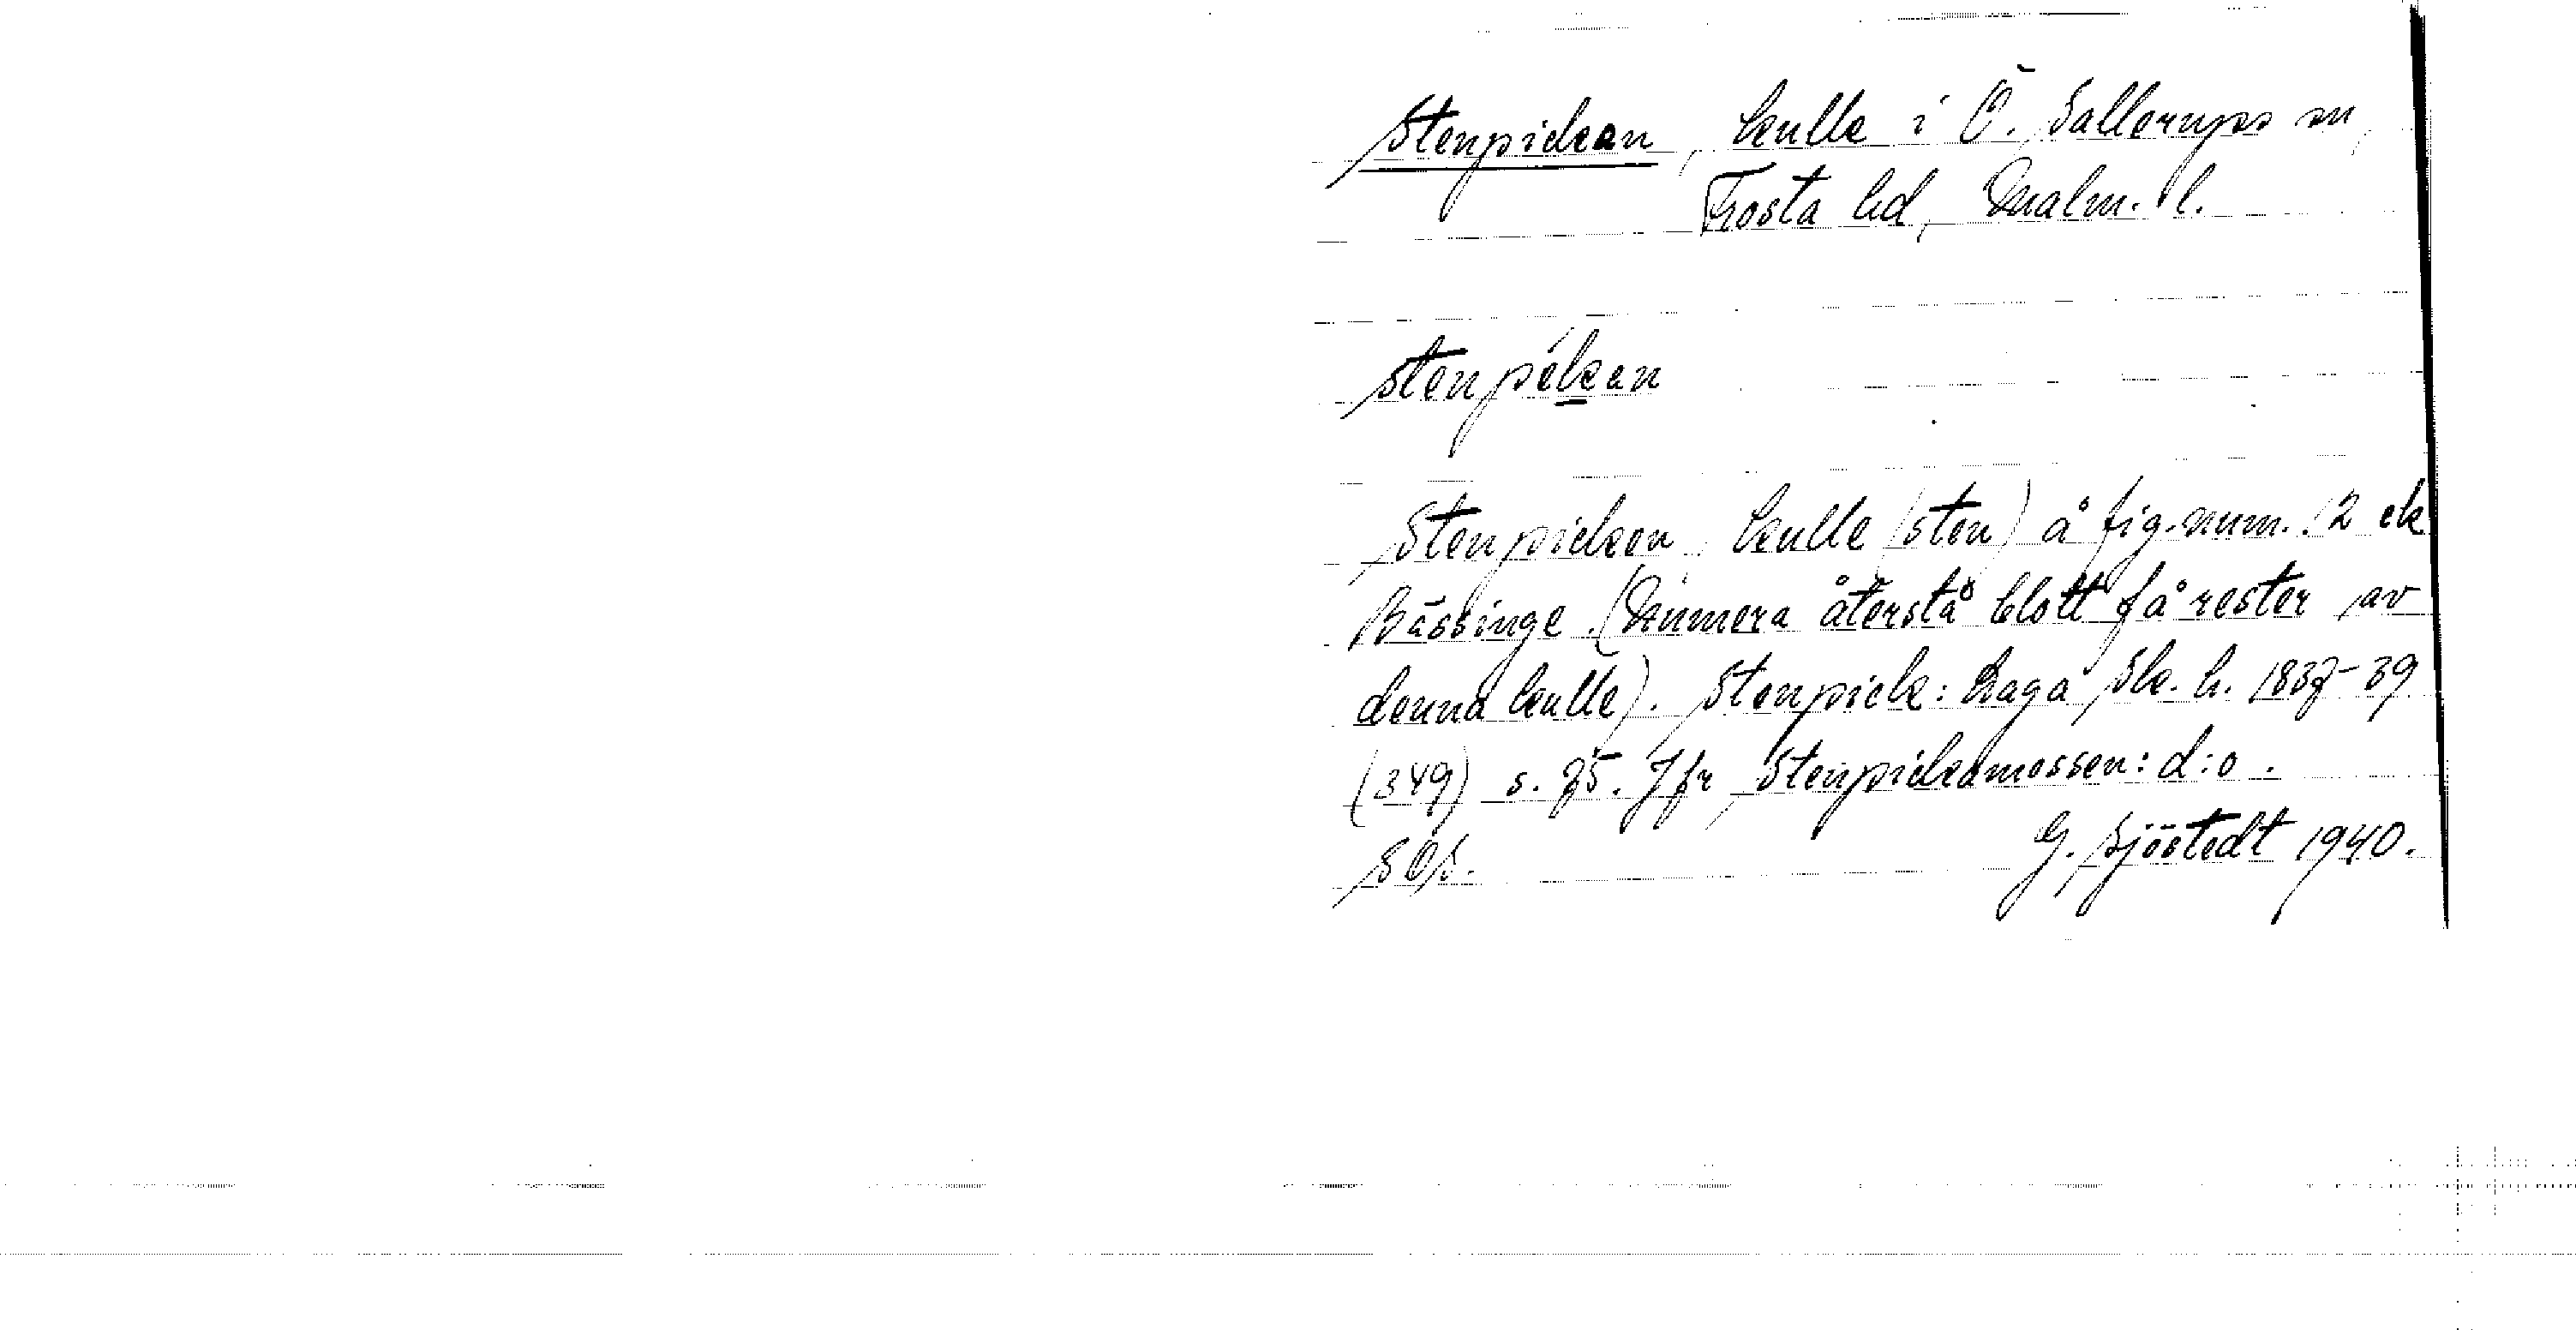 Stenpickan, kulle i Ö. Sallerups sn,
Frosta hd, Malm. l.
stenpékan
Stenpicken, kulle (sten) å fig.num. 12 ek
Bässinge. (Numera återstå blott få rester av
denna kulle). Stenpick: Laga Sk. h. 1837-39
(349) s. 75. Jfr Stenpickamossen: d:o.
SOS. G. Sjöstedt 1940.